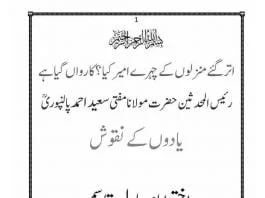 1
بسم اللہ الرحمن الرحیم
اتر گئے منزلوں کے چہرے امیر کیا؟ کارواں گیا ہے
رئیس المحدثین حضرت مولانا مفتی سعید احمد پالنپوریؒ
یادوں کے نقوش